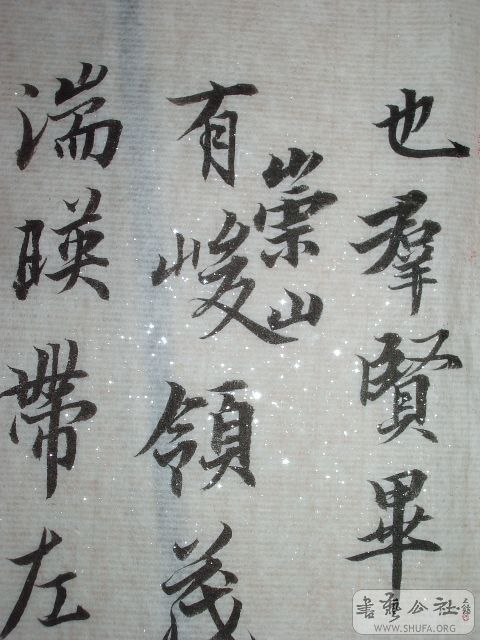 也羣賢畢
有崇山峻領茂
湍暎帶左
書藝公社
WWW.SHUFA.ORG